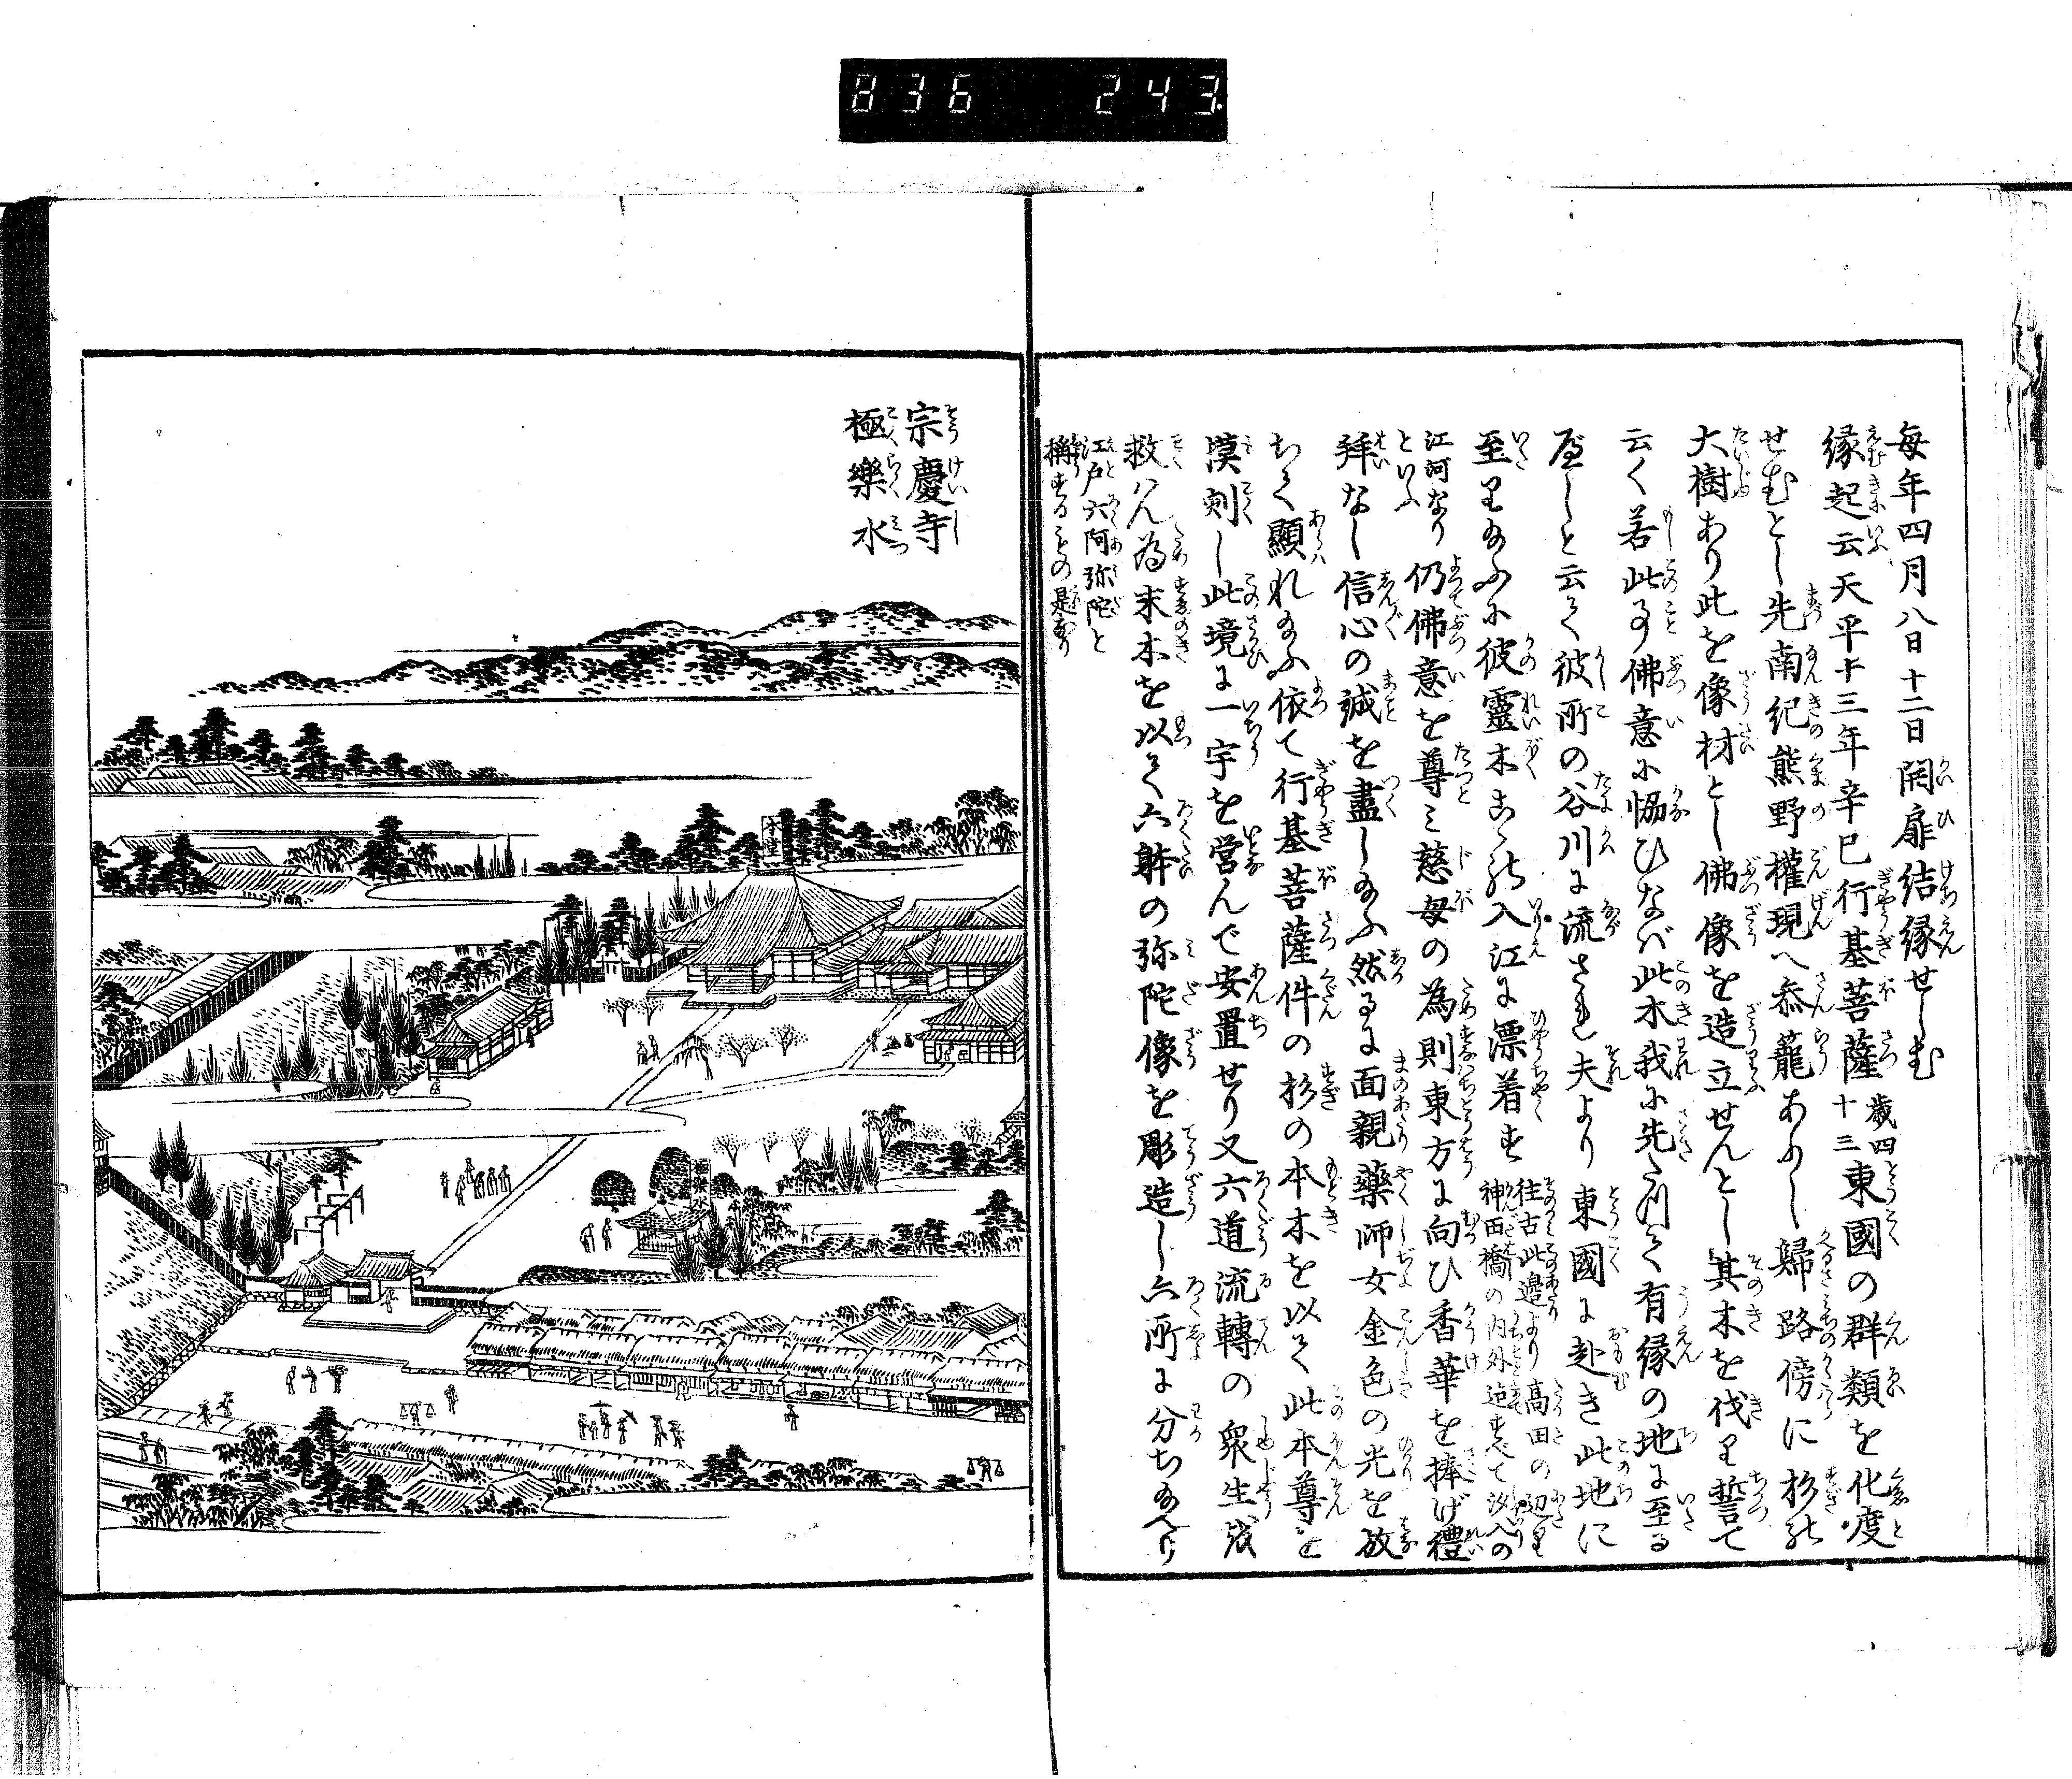 836 243
毎年四月八日十二日開扉結縁せしむ
縁起云天平十三年辛巳行基菩薩歳四十三東國の群類を化度
せむとし先南紀熊野權現へ参籠ありし歸路傍に杉の
大樹あり此を像材とし佛像を造立せんとし其木を伐り誓て
云く若此事佛意に恊ひなば此木我に先たつて有縁の地に至る
べしと云て彼所の谷川に流され夫より東國に赴き此地に
至り給ふに彼靈木こゝの入江に漂着す往古此邊より高田の辺り神田橋の内外迄すべて汐入の
江河なりといふ仍佛意を尊み慈母の為則東方に向ひ香華を捧げ禮
拜なし信心の誠を盡し給ふ然るに面親藥師女金色の光を放
ちて顯れ給ふ依て行基菩薩件の杉の本木を以て此本尊を
摸刻し此境に一宇を営んで安置せり又六道流轉の衆生を
救はん為末木を以て六躰の弥陀像を彫造し六所に分ち給へり
江戸六阿弥陀と
稱するもの是なり
宗慶寺
極樂水
本堂
極楽水